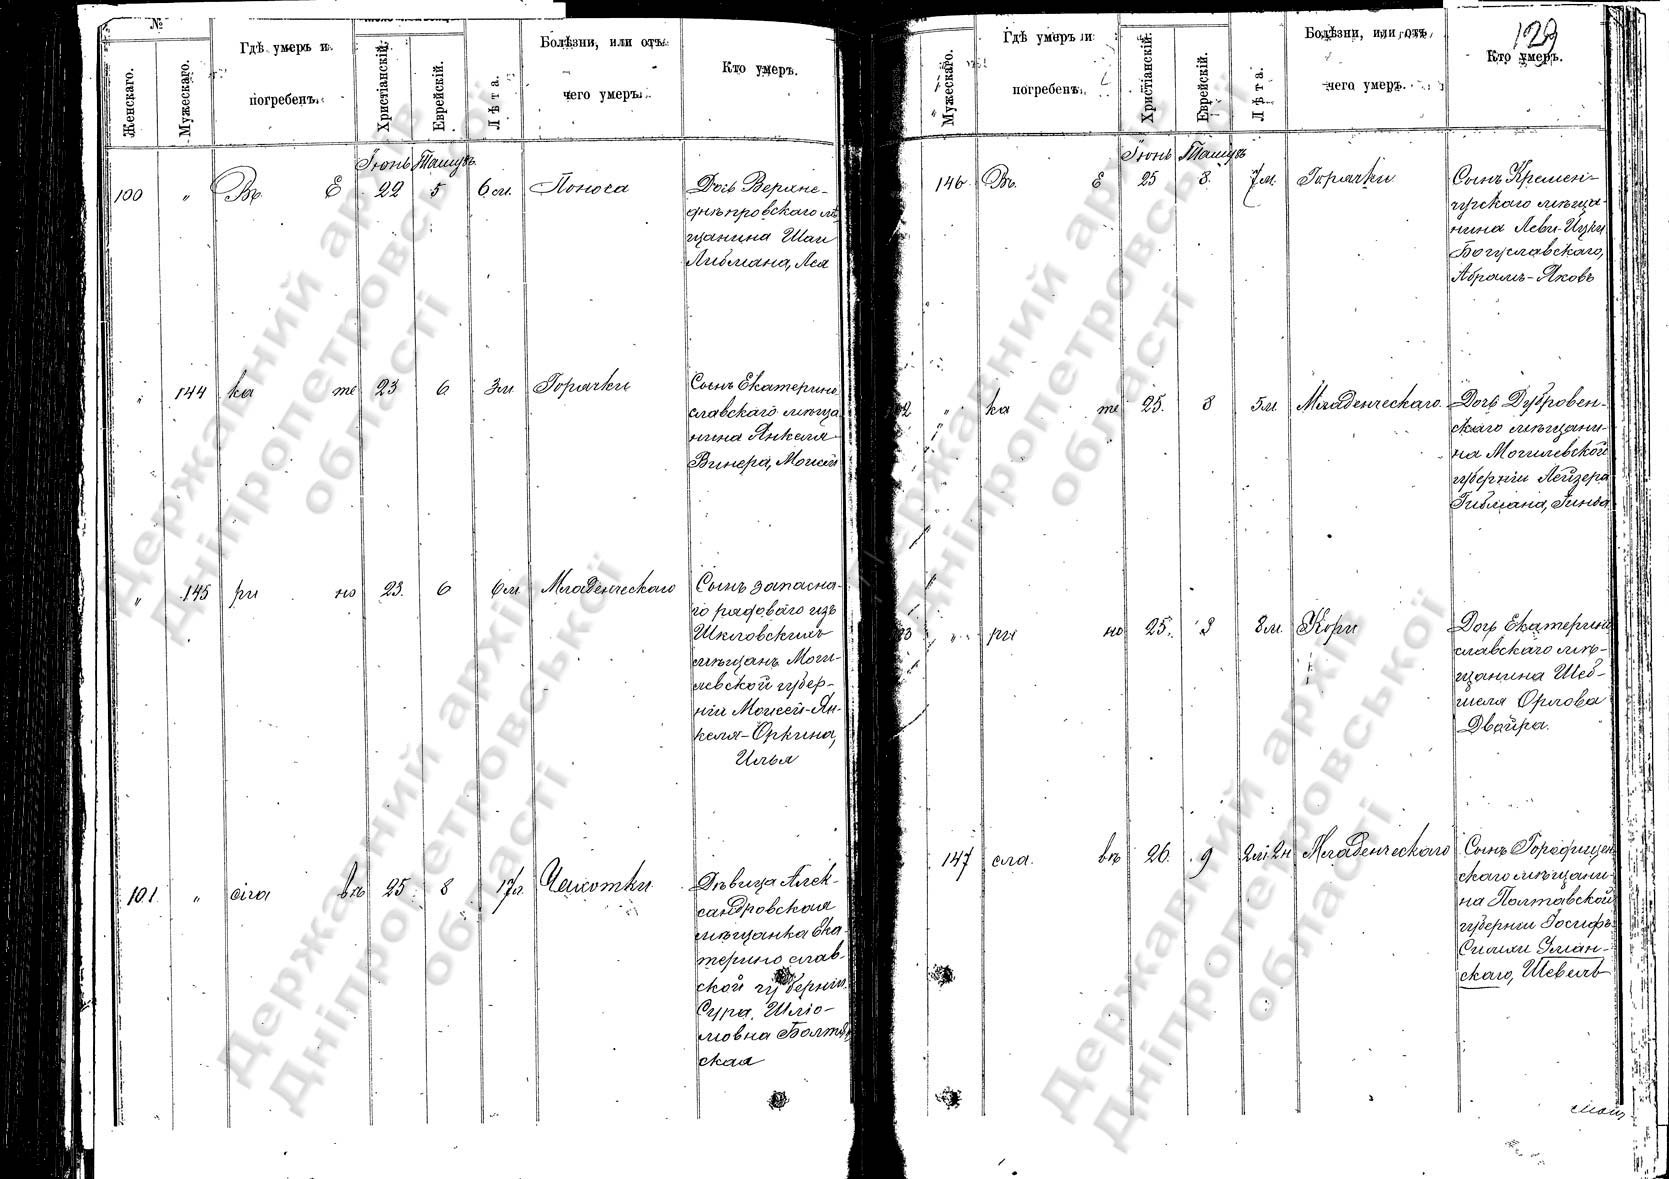 №
Женскаго.
Мужескаго.
Гдѣ умеръ и
погребенъ.
Христіанскій.
Еврейскій.
Лѣта.
Болѣзни, или отъ
чего умеръ.
Кто умеръ.
Іюнь Тамузъ
100 " Въ Е 22 5 6 м. Поноса
Дочь Верхне-
днѣпровскаго мѣ
щанина Шаи
Либмана, Лея
" 144 ка те 23 6 3 м Горячки
Сынъ Екатерино
славскаго мѣща
нина Янкеля
Винера, Моисей
" 145 ри но 23. 6 6 м Младенческаго
Сынъ запасна-
го рядоваго изъ
Шкловскихъ
мѣщанъ Моги-
левской губер-
ніи Моисей-Ян-
келя-Оркина,
Илья
101 " сла вѣ 25 8 17 л Чахотки
Дѣвица Алек-
сандровская
мѣщанка Ека-
терино слав-
ской губерніи
Сура Шліо-
мовна Болтян
ская
129
Мужескаго.
Гдѣ умеръ и
погребенъ.
Христіанскій.
Еврейскій.
Лѣта.
Болѣзни, или отъ
чего умеръ.
Кто умеръ.
Іюнь Тамузъ
146 Въ Е 25 8 7 м. Горячки
Сынъ Кремен-
чугскаго мѣща-
нина Леви-Ицки
Богуславскаго,
Абрамъ-Яковъ
2 " ка те 25. 8 5 м. Младенческаго
Дочь Дубровен-
скаго мѣщани-
на Могилевской
губерніи Лейзера
Гибмана, Гинда
3 " ри но 25. 8 8 м. Кори
Дочь Екатерино
славскаго мѣ-
щанина Шеб-
шеля Орлова
Двойра.
147 сла. вѣ 26. 9 2 м 2 н Младенческаго
Сынъ Городищен
скаго мѣщани-
на Полтавской
губерніи Іосифъ
Симхи Уман-
скаго, Шевель
Державний архів
Дніпропетровської
області
Державний архів
Дніпропетровської
області
Державний архів
Дніпропетровської
області
Державний архів
Дніпропетровської
області